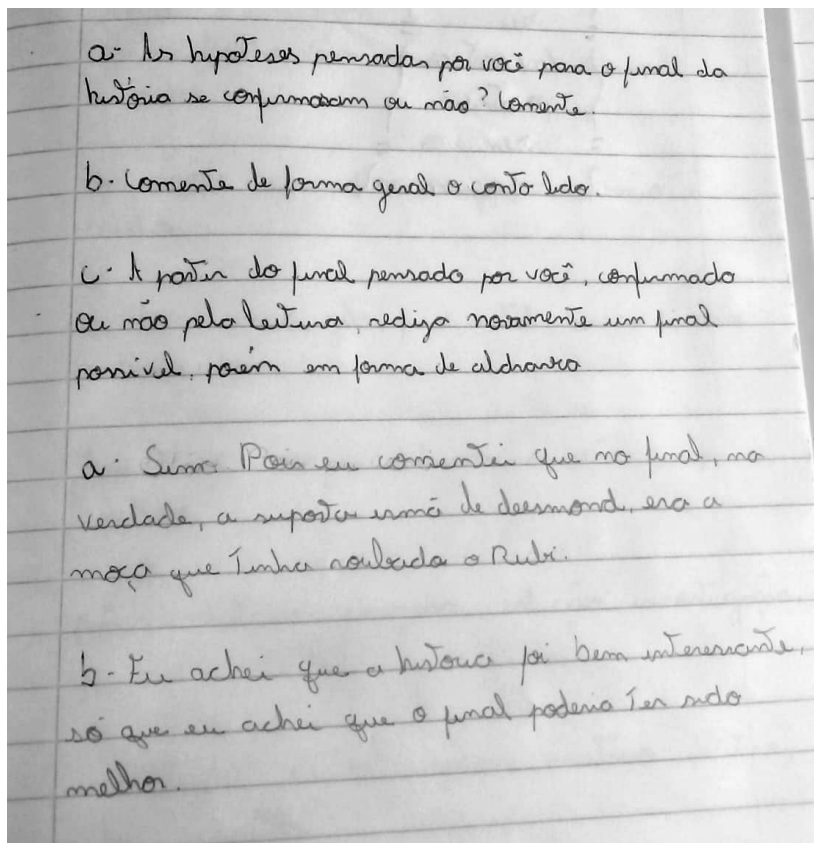 a- As hipoteses pensadas por você para o final da
história se confirmaram ou não? Comente.
b- Comente de forma geral o conto lido.
c- A partir do final pensado por você, confirmado
ou não pela leitura, redija novamente um final
possível, porém em forma de aldravia
a- Sim. Pois eu comentei que no final, na
verdade, a suposta irmã de deesmond, era a
moça que tinha roubada o Rubi.
b- Eu achei que a história foi bem interessante,
só que eu achei que o final poderia ter sido
melhor.